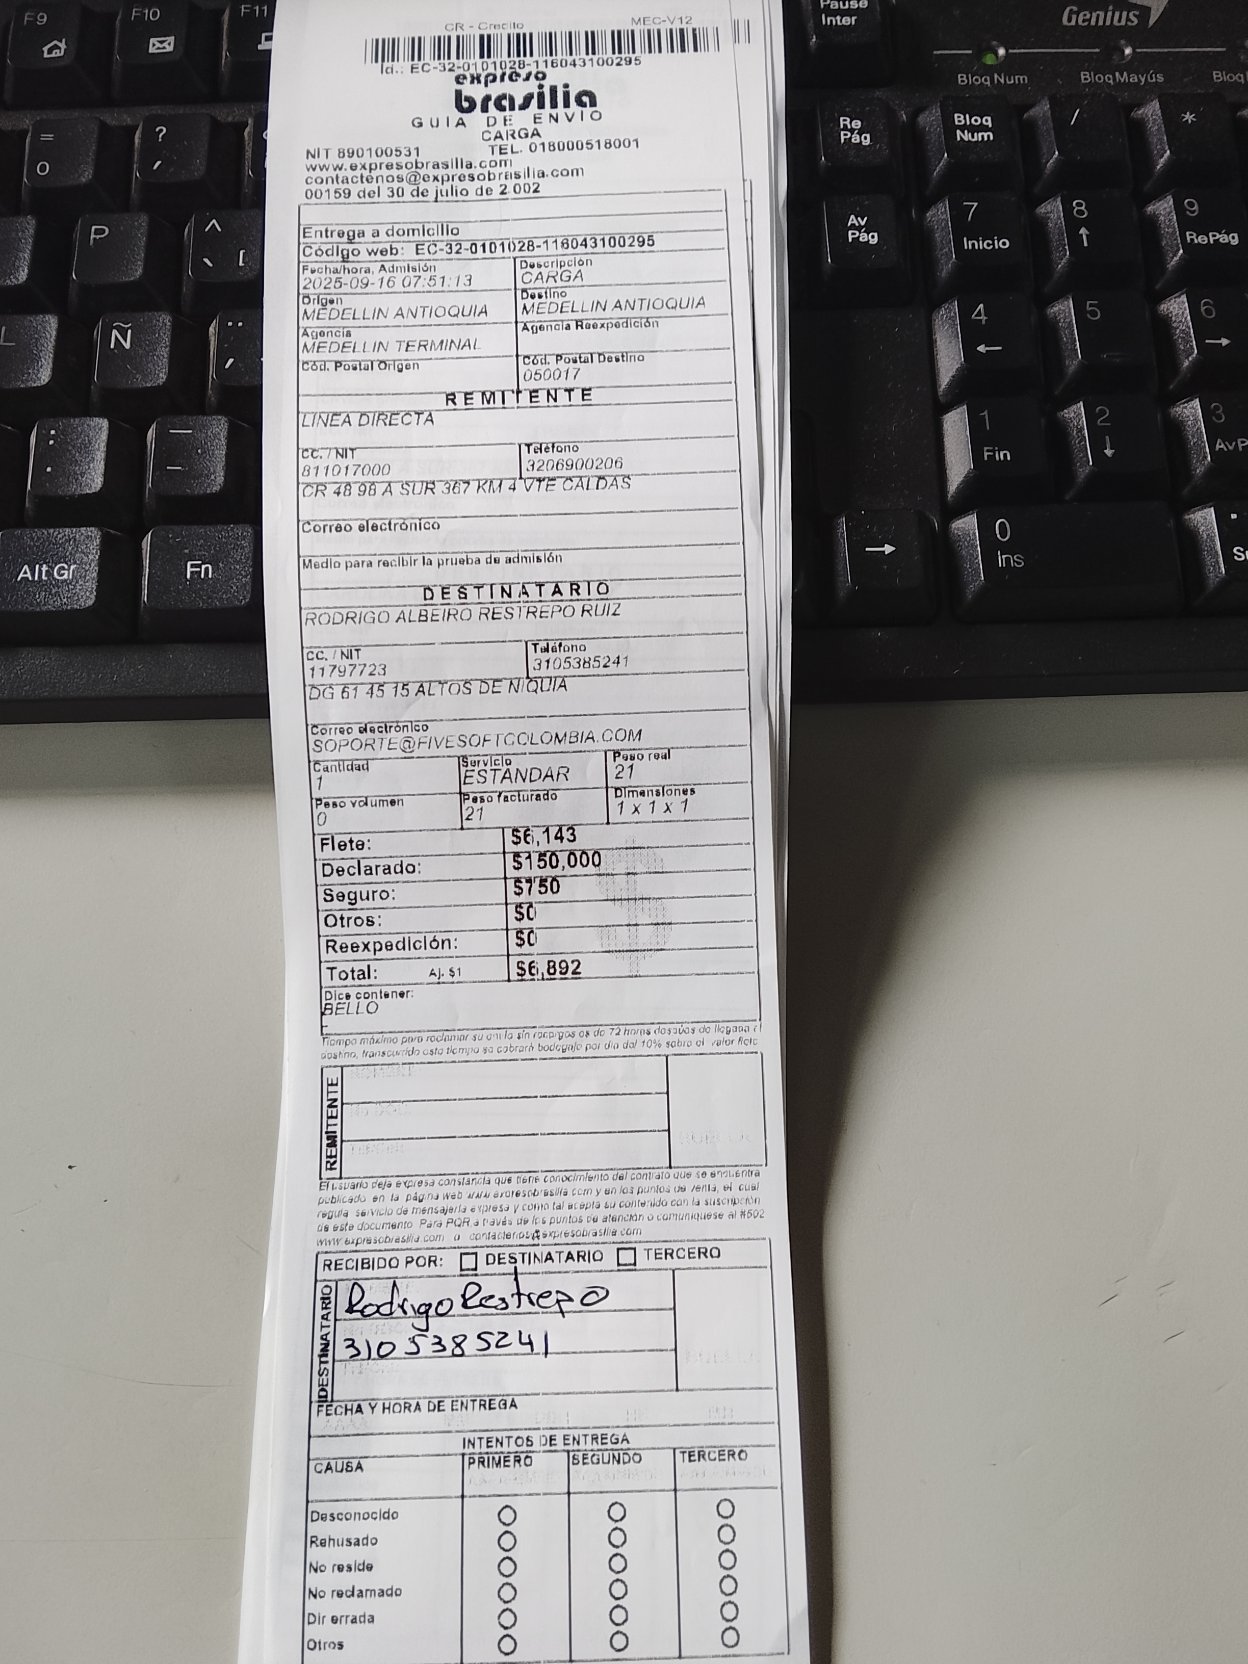 F9
F10
F11
Pause
Inter
Genius
Bloq Num
Bloq Mayús
Bloq
=
0
?
P
^
[
Ñ
Alt Gr
Fn
Re
Pág
Bloq
Num
/
*
Av
Pág
7
Inicio
8
9
RePág
4
5
6
1
Fin
2
3
AvP
0
Ins
CR - Credito
MEC-V12
Id.: EC-32-0101028-116043100295
expreso
brasilia
GUIA DE ENVIO
CARGA
NIT 890100531 TEL. 018000518001
www.expresobrasilia.com
contactenos@expresobrasilia.com
00159 del 30 de julio de 2.002
Entrega a domicilio
Código web: EC-32-0101028-116043100295
Fecha/hora, Admisión Descripción
2025-09-16 07:51:13 CARGA
Origen Destino
MEDELLIN ANTIOQUIA MEDELLIN ANTIOQUIA
Agencia Agencia Reexpedición
MEDELLIN TERMINAL
Cód. Postal Origen Cód. Postal Destino
050017
REMITENTE
LINEA DIRECTA
CC. / NIT Teléfono
811017000 3206900206
CR 48 98 A SUR 367 KM 4 VTE CALDAS
Correo electrónico
Medio para recibir la prueba de admisión
DESTINATARIO
RODRIGO ALBEIRO RESTREPO RUIZ
CC. / NIT Teléfono
11797723 3105385241
DG 61 45 15 ALTOS DE NIQUIA
Correo electrónico
SOPORTE@FIVESOFTCOLOMBIA.COM
Cantidad Servicio Peso real
1 ESTANDAR 21
Peso volumen Peso facturado Dimensiones
0 21 1 x 1 x 1
Flete: $6,143
Declarado: $150,000
Seguro: $750
Otros: $0
Reexpedición: $0
Total: Aj. $1 $6,892
Dice contener:
BELLO
-
Tiempo máximo para reclamar su envío sin recargos es de 72 horas después de llegada
destino, transcurrido este tiempo se cobrará bodegaje por día del 10% sobre el valor flete
REMITENTE
El usuario deja expresa constancia que tiene conocimiento del contrato que se encuentra
publicado en la página web www.expresobrasilia.com y en los puntos de venta, el cual
regula servicio de mensajería expresa y como tal acepta su contenido con la suscripción
de este documento. Para PQR a través de los puntos de atención o comuníquese al #502
www.expresobrasilia.com o contactenos@expresobrasilia.com
RECIBIDO POR: DESTINATARIO TERCERO
DESTINATARIO
Rodrigo Restrepo
3105385241
FECHA Y HORA DE ENTREGA
INTENTOS DE ENTREGA
CAUSA PRIMERO SEGUNDO TERCERO
Desconocido
Rehusado
No reside
No reclamado
Dir errada
Otros